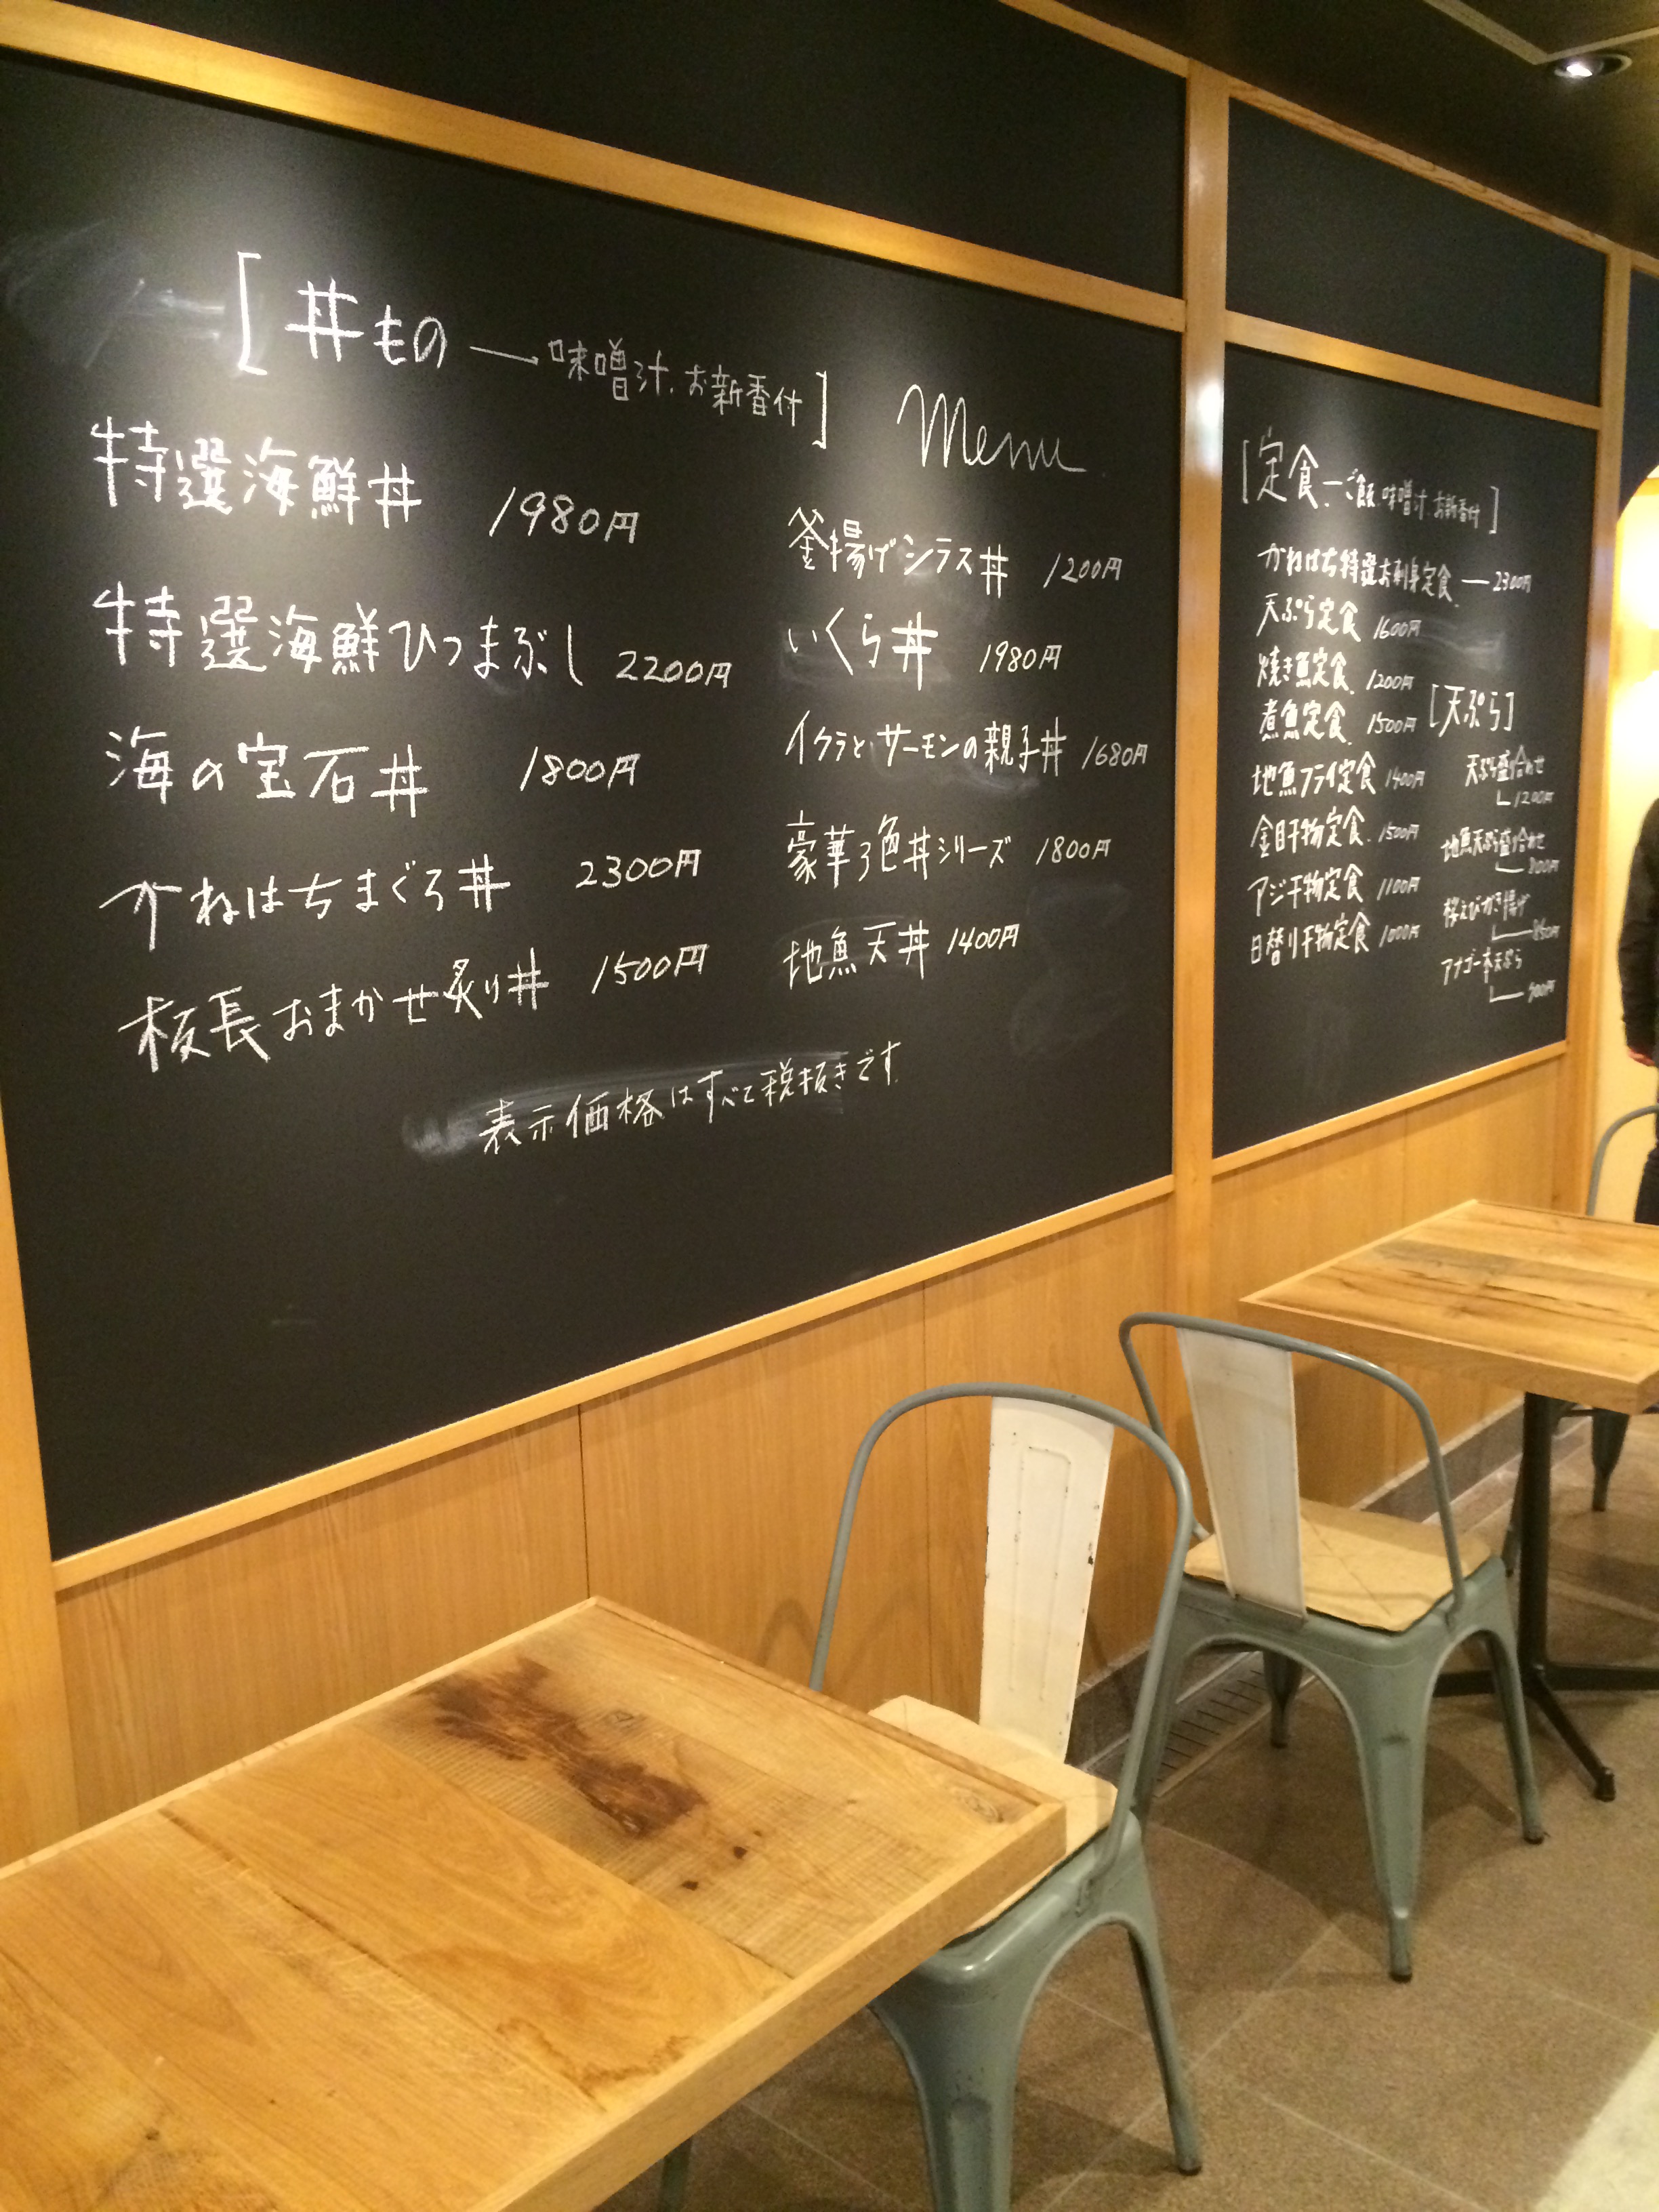 [丼もの ― 味噌汁、お新香付]
Menu
特選海鮮丼 1980円
特選海鮮ひつまぶし 2200円
海の宝石丼 1800円
かねはちまぐろ丼 2300円
板長おまかせ炙り丼 1500円
釜揚げシラス丼 1200円
いくら丼 1980円
イクラとサーモンの親子丼 1680円
豪華3色丼シリーズ 1800円
地魚天丼 1400円
表示価格はすべて税抜きです。
[定食 ― ご飯、味噌汁、お新香付]
かねはち特選お刺身定食 ― 2300円
天ぷら定食 1600円
焼き魚定食 1200円
煮魚定食 1500円
地魚フライ定食 1400円
金目干物定食 1500円
アジ干物定食 1100円
日替り干物定食 1000円
[天ぷら]
天ぷら盛り合わせ
1200円
地魚天ぷら盛り合わせ
桜えびかき揚げ
850円
アナゴ一本天ぷら
900円